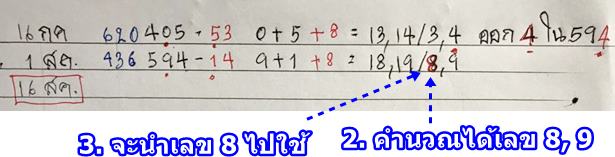 16 กค 620 405 - 53 0+5+8 = 13,14/3,4 ออก 4 ใน 594
1 สค. 436 594 - 14 9+1+8 = 18,19/8,9
16 สค.
3. จะนำเลข 8 ไปใช้ 2. คำนวณได้เลข 8, 9